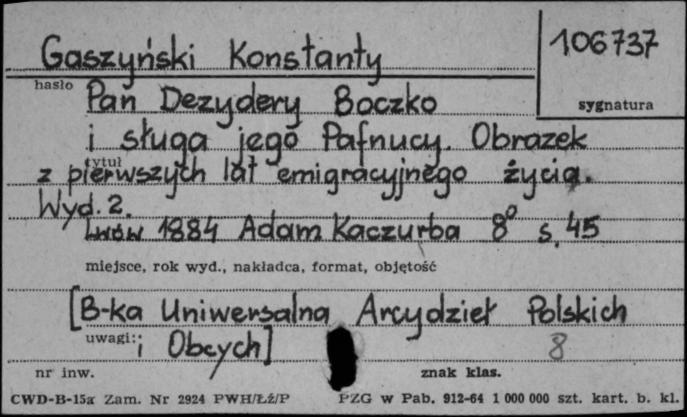 Gaszyński Konstanty
106737
hasło
sygnatura
Pan Dezydery Boczko
i sługa jego Pafnucy. Obrazek
tytuł
z pierwszych lat emigracyjnego życia.
Wyd. 2.
Lwów 1884 Adam Kaczurba 8° s. 45
miejsce, rok wyd., nakładca, format, objętość
[B-ka Uniwersalna Arcydzieł Polskich
uwagi:
i Obcych]
8
nr inw.
znak klas.
CWD-B-15a Zam. Nr 2924 PWH/Łż/P PZG w Pab. 912-64 1 000 000 szt. kart. b. kl.